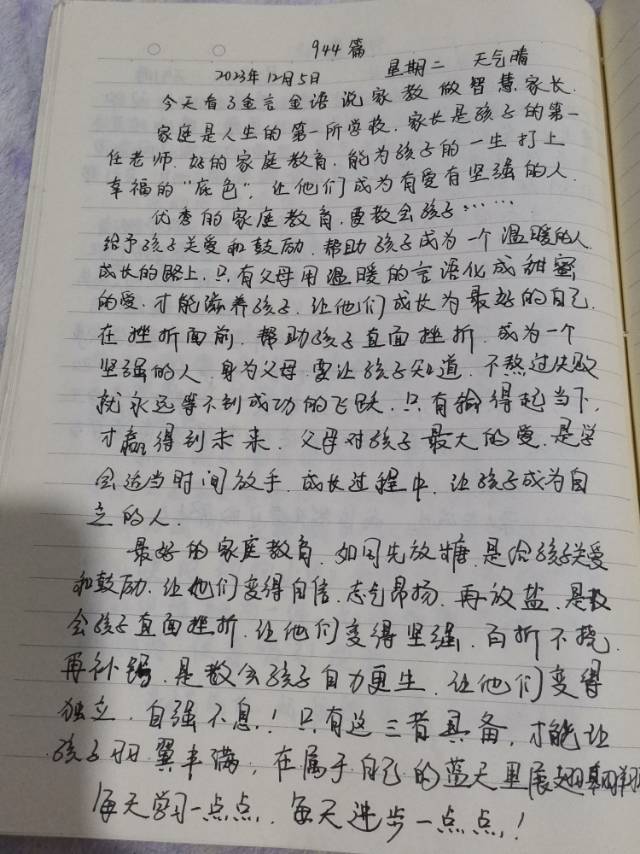 944篇
2023年12月5日 星期二 天气晴
今天看了金言金语说家教做智慧家长.
家庭是人生的第一所学校.家长是孩子的第一
任老师.好的家庭教育.能为孩子的一生打上
幸福的"底色".让他们成为有爱有坚强的人.
优秀的家庭教育.要教会孩子……
给予孩子关爱和鼓励.帮助孩子成为一个温暖的人.
成长的路上.只有父母用温暖的言语化成甜蜜
的爱.才能滋养孩子.让他们成长为最好的自己.
在挫折面前.帮助孩子直面挫折.成为一个
坚强的人.身为父母.要让孩子知道.不熬过失败
就永远等不到成功的飞跃.只有输得起当下.
才赢得到未来.父母对孩子最大的爱.是学
会适当时间放手.成长过程中.让孩子成为自
立的人.
最好的家庭教育.如同先放糖.是给孩子关爱
和鼓励.让他们变得自信.志气昂扬.再放盐.是教
会孩子直面挫折.让他们变得坚强.百折不挠.
再补钙.是教会孩子自力更生.让他们变得
独立.自强不息!只有这三者具备.才能让
孩子羽翼丰满,在属于自己的蓝天里展翅翱翔
每天学习一点点.每天进步一点点!